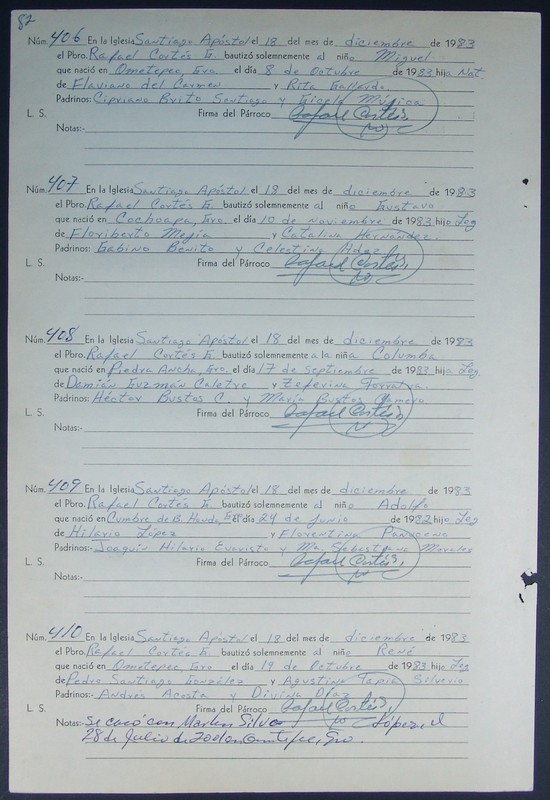 82
Núm. 406 En la Iglesia Santiago Apóstol el 18 del mes de diciembre de 1983
el Pbro. Rafael Cortés G. bautizó solemnemente al niño Miguel
que nació en Ometepec, Gro. el día 8 de Octubre de 1983 hijo Nat.
de Flaviano del Carmen y Rita Gallardo.
Padrinos: Cipriano Brito Santiago y Gisela Múgica
L. S. Firma del Párroco Rafael Cortés
Notas:-
Núm. 407 En la Iglesia Santiago Apóstol el 18 del mes de diciembre de 1983
el Pbro. Rafael Cortés G. bautizó solemnemente al niño Gustavo
que nació en Cochoapa, Gro. el día 10 de noviembre de 1983 hijo Leg
de Floriberto Mejía y Catalina Hernández.
Padrinos: Gabino Benito y Celestina
L. S. Firma del Párroco Rafael Cortés
Notas:-
Núm. 408 En la Iglesia Santiago Apóstol el 18 del mes de diciembre de 1983
el Pbro. Rafael Cortés G. bautizó solemnemente a la niña Columba
que nació en Piedra Ancha, Gro. el día 17 de septiembre de 1983 hija Leg
de Damián Guzmán y Zeferina
Padrinos: Héctor Bustos C. y María Bustos
L. S. Firma del Párroco Rafael Cortés
Notas:-
Núm. 409 En la Iglesia Santiago Apóstol el 18 del mes de diciembre de 1983
el Pbro. Rafael Cortés G. bautizó solemnemente al niño Adolfo
que nació en Cumbre de B. Honda, Gro. el día 24 de Junio de 1982 hijo Leg
de Hilario López y Florentina
Padrinos:- Joaquín Hilario Evaristo y Ma. Sebastiana Morales
L. S. Firma del Párroco Rafael Cortés
Notas:-
Núm. 410 En la Iglesia Santiago Apóstol el 18 del mes de diciembre de 1983
el Pbro. Rafael Cortés G. bautizó solemnemente al niño René
que nació en Ometepec, Gro el día 19 de Octubre de 1983 hijo Leg
de Pedro Santiago González y Agustina Tapia Silverio
Padrinos:- Andrés Acosta y Divina Díaz
L. S. Firma del Párroco Rafael Cortés
Notas:- Se casó con López, el
28 de Julio de Ometepec, Gro.